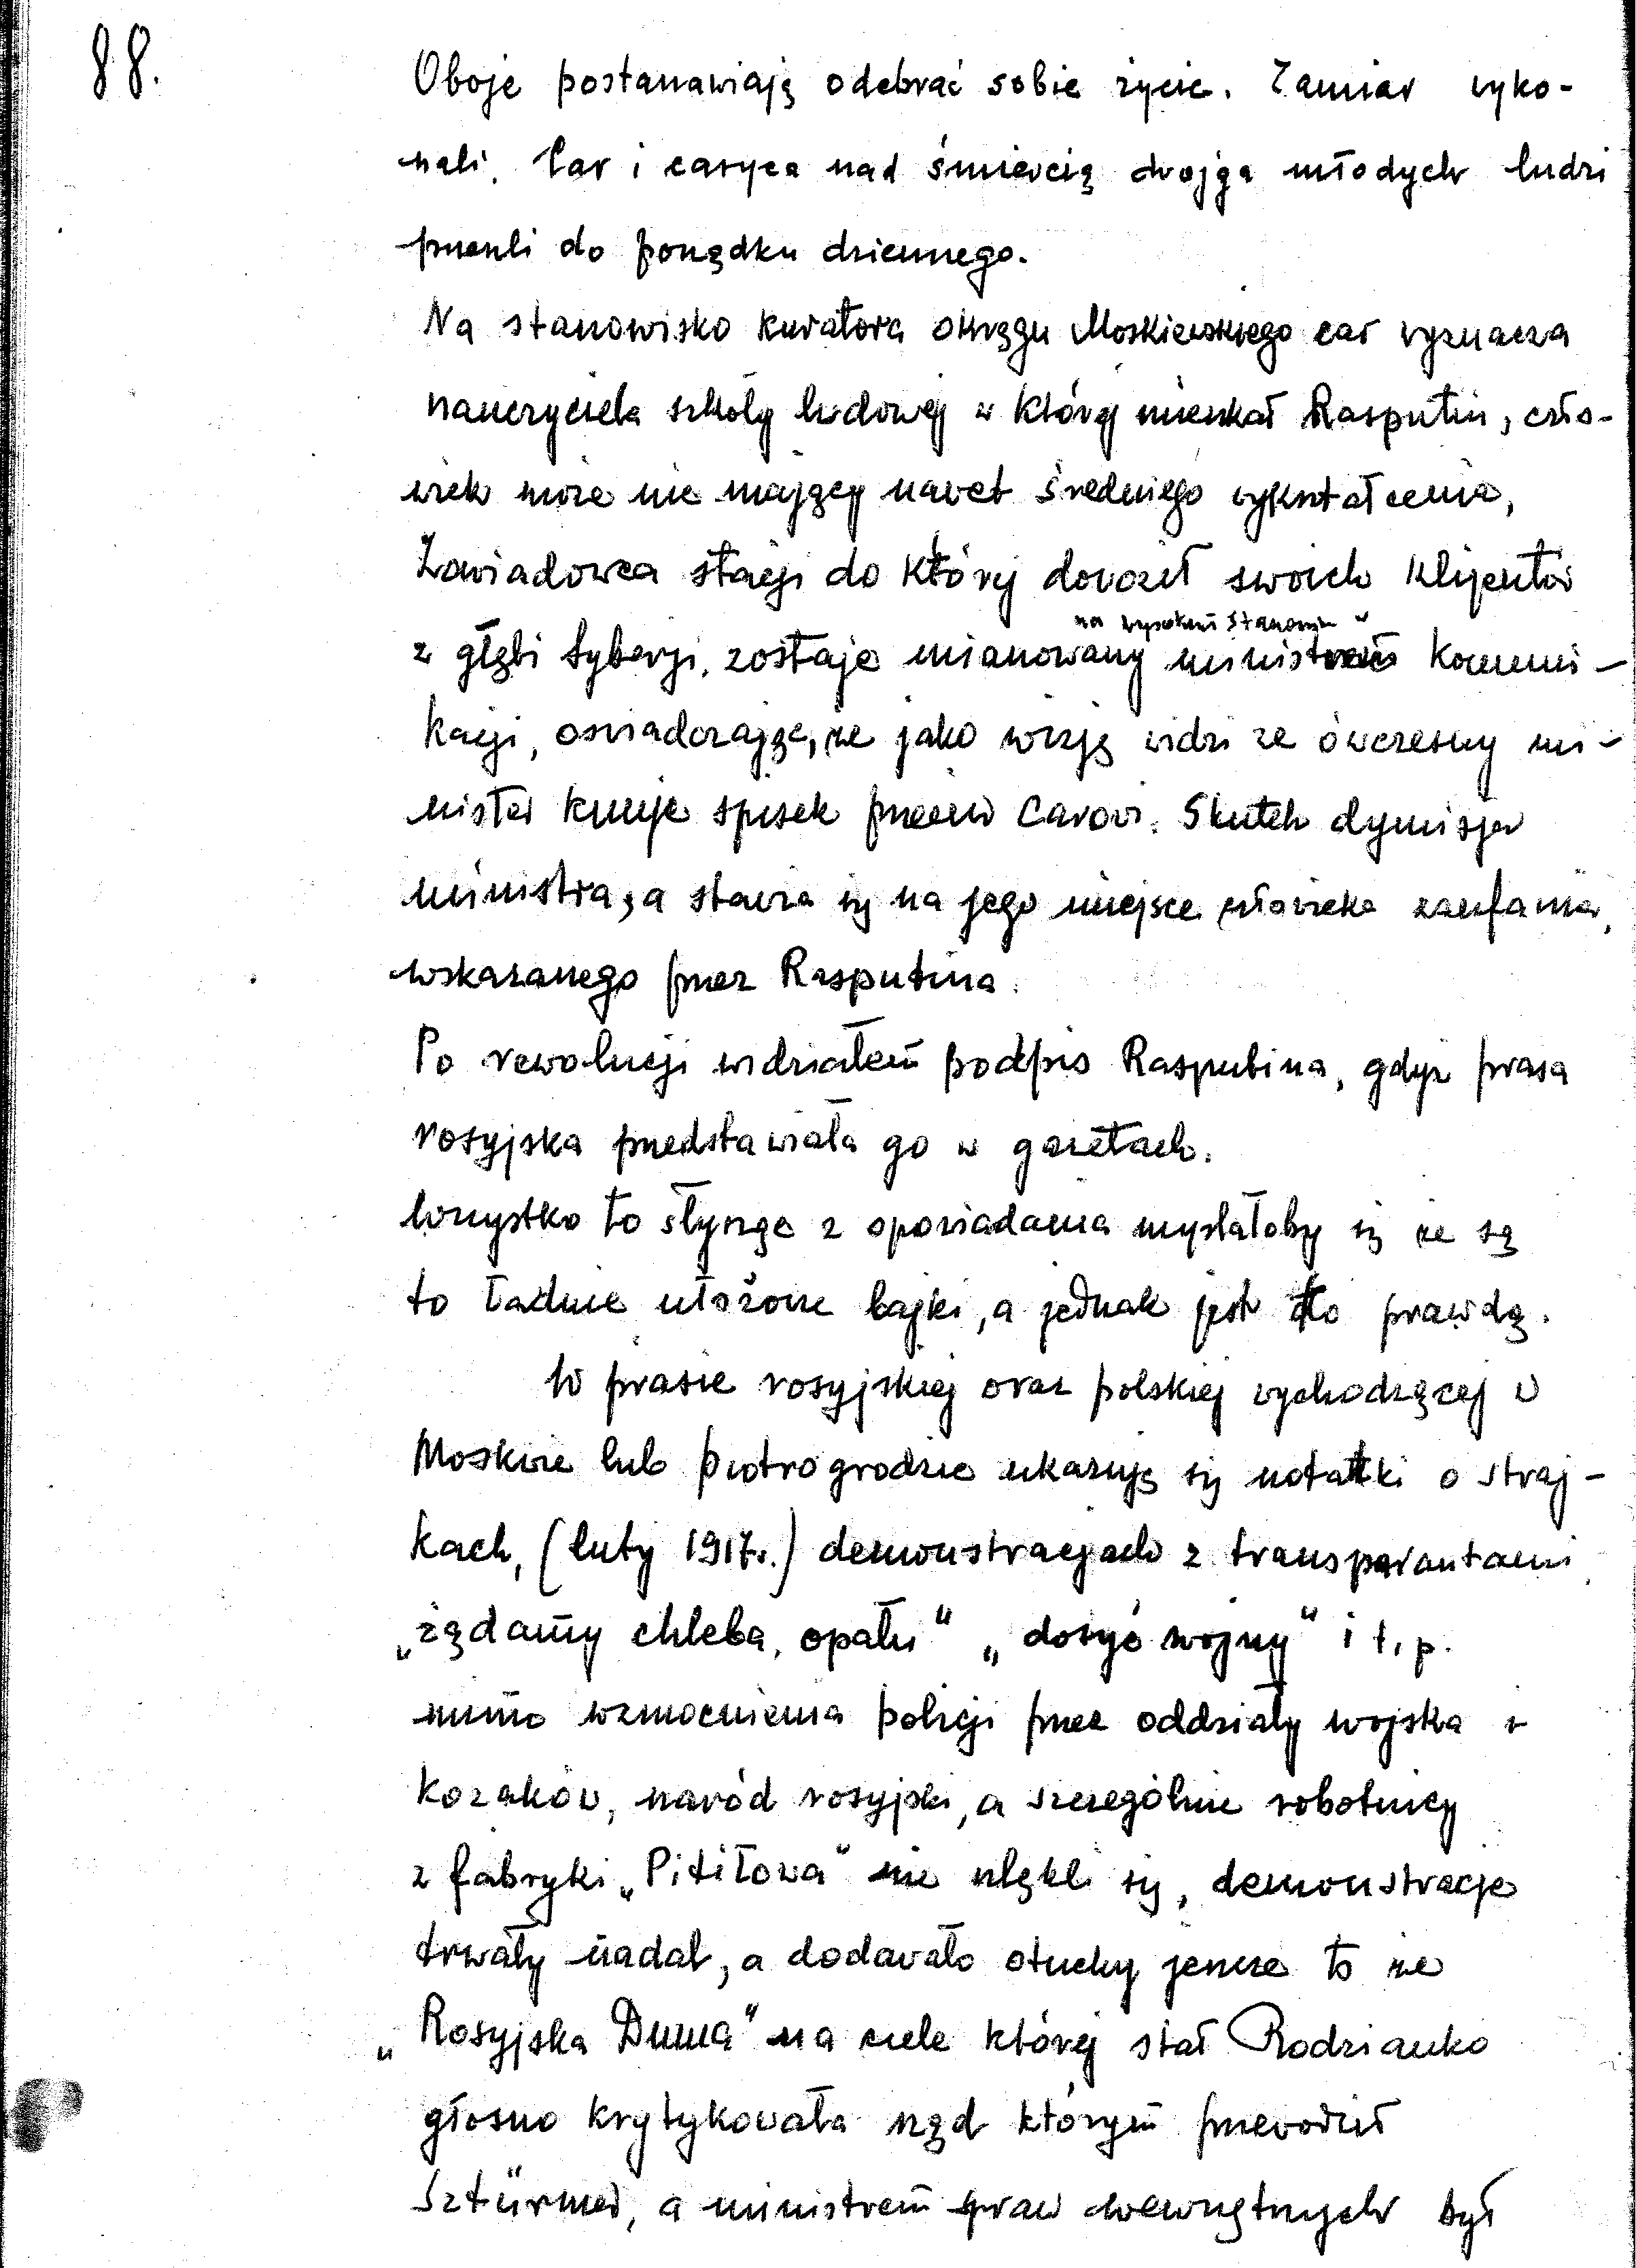 88.
Oboje postanawiają odebrać sobie życie. Zamiar wyko-
nali. Car i caryca nad śmiercią dwojga młodych ludzi
przeszli do porządku dziennego.
Na stanowisko kuratora okręgu Moskiewskiego car wyznacza
nauczyciela szkoły ludowej w której mieszkał Rasputin, czło-
wiek może nie mający nawet średniego wykształcenia,
Zawiadowca stacji do której dowoził swoich klijentów
na wysokim stanowisku
z głębi Syberji, zostaje mianowany ministrem komuni-
kacji, oświadczając, że jako wizję widzi że ówczesny mi-
nister knuje spisek przeciw Carowi. Skutek dymisja
ministra, a stawia się na jego miejsce człowieka zaufania,
wskazanego przez Rasputina.
Po rewolucji widziałem podpis Rasputina, gdyż prasa
rosyjska przedstawiała go w gazetach.
Wszystko to słysząc z opowiadania myslałoby się że są
to ładnie ułożone bajki, a jednak jest to prawdą.
W prasie rosyjskiej oraz polskiej wychodzącej w
Moskwie lub Piotrogrodzie ukazują się notatki o straj-
kach, (luty 1917r.) demonstracjach z transparantami
„żądamy chleba, opału" „dosyć wojny" i t.p.
mimo wzmocnienia policji przez oddziały wojska i
kozaków, naród rosyjski, a szczególnie robotnicy
z fabryki „Pitiłowa" nie ulękli się, demonstracje
trwały nadal, a dodawało otuchy jeszcze to że
„Rosyjska Duma" na czele której stał Rodzianko
głosno krytykowała rząd którym przewodził
Sztürmer, a ministrem spraw wewnętrznych był